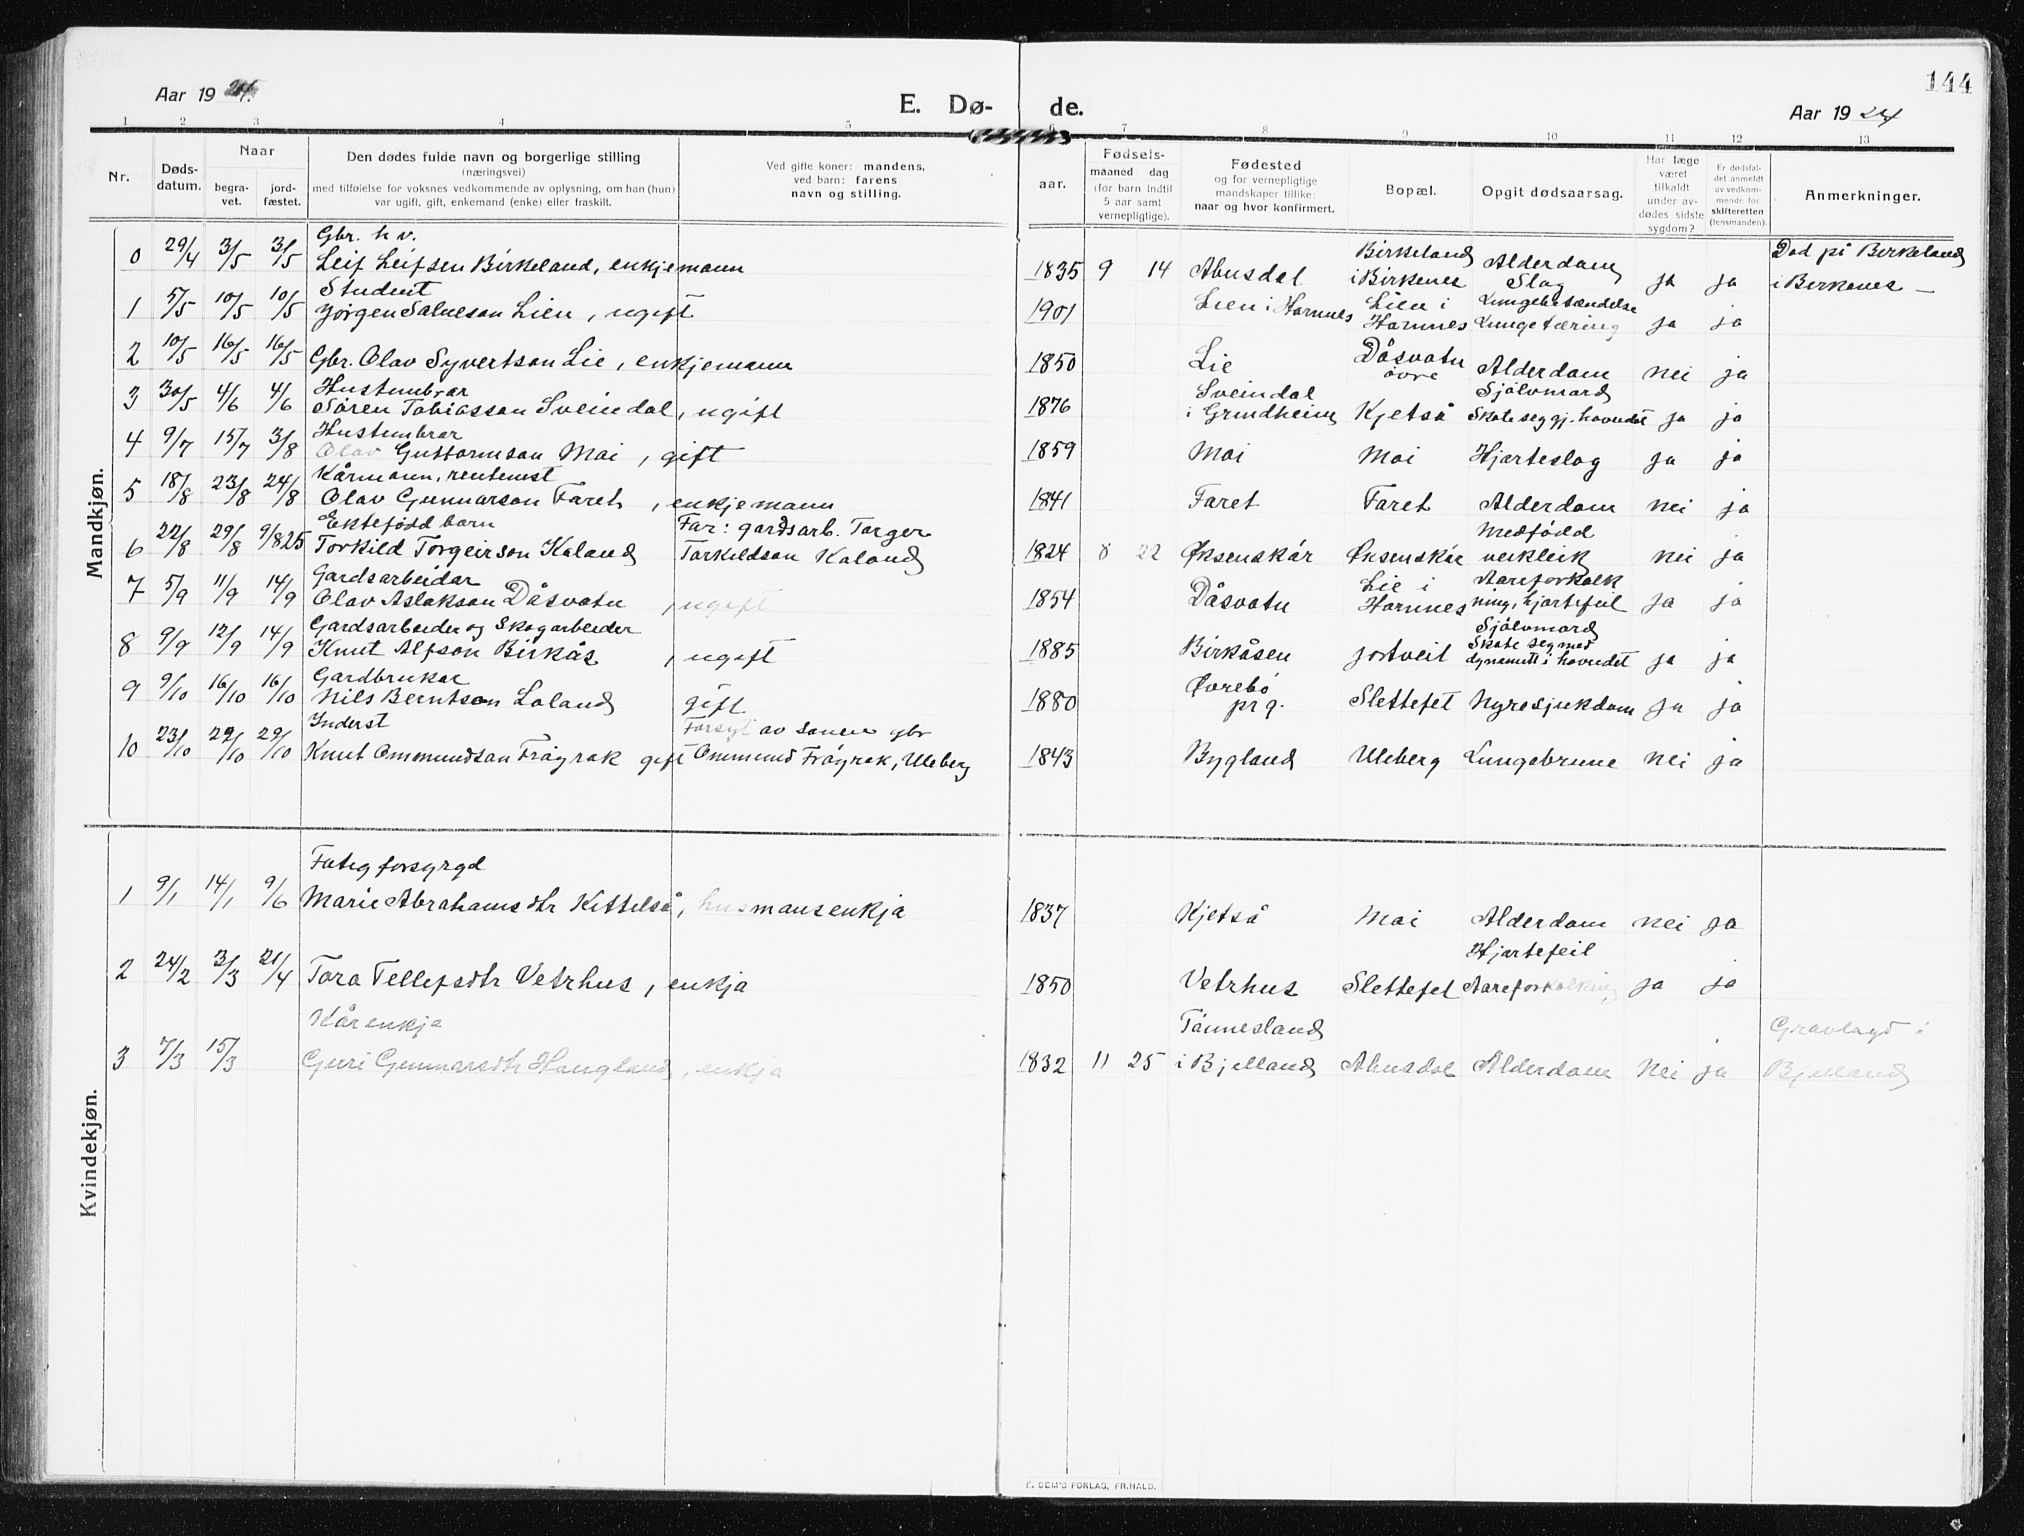 144
Aar 1924.
E. Dø- de.
Aar 1924
1 2 3 4 5 6 7 8 9 10 11 12 13
Nr.
Døds-
datum.
Naar
begra-
vet.
jord-
fæstet.
Den dødes fulde navn og borgerlige stilling
(næringsvei)
med tilføielse for voksnes vedkommende av oplysning, om han (hun)
var ugift, gift, enkemand (enke) eller fraskilt.
Ved gifte koner: mandens,
ved barn: farens
navn og stilling.
aar.
Fødsels-
maaned dag
(for barn indtil
5 aar samt
vernepligtige).
Fødested
og for vernepligtige
mandskaper tillike:
naar og hvor konfirmert.
Bopæl.
Opgit dødsaarsag.
Har læge
været
tilkaldt
under av-
dødes sidste
sygdom?
Er dødsfal-
det anmeldt
av vedkom-
mende for
skifteretten
(lensmanden).
Anmerkninger.
Mandkjøn.
Gbr. h v. Birkeland Alderdom Død på Birkeland
0 29/4 3/5 3/5 Leif Leifsen Birkeland, enkjemann 1835 9 14 Ahusdal i Birkenes Slag ja ja i Birkenes —
Student Lien i Lungebetændelse
1 5/5 10/5 10/5 Jørgen Salveson Lien, ugift 1901 Lien i Hornnes Hornnes Lungetæring ja ja
2 10/5 16/5 16/5 Gbr. Olav Syvertson Lie, enkjemann 1850 Lie Dåsvatn øvre Alderdom nei ja
Hustumbrar Sveindal Sjølvmord
3 30/5 4/6 4/6 Søren Tobiasson Sveindal, ugift 1876 i Grindheim Kjetså Skote seg gj. hovudet ja ja
Hustumbrar
4 9/7 15/7 3/8 Olav Guttormson Moi, gift 1859 Moi Moi Hjarteslag ja ja
Kårmann, rentenist
5 18/8 23/8 24/8 Olav Gunnarson Faret, enkjemann 1841 Faret Faret Alderdom nei ja
Ektefødd barn Far: gardsarb. Torger Medfødd
6 22/8 29/8 9/8 25 Torkild Torgeirson Kaland Torkildson Kaland 1824 8 22 Øksenskår Øksenskår veikleik nei ja
Gardsarbeidar Lie i Aareforkalk
7 5/9 11/9 14/9 Olav Aslakson Dåsvatn, ugift 1854 Dåsvatn Hornnes ning, hjartefeil ja ja
Gardsarbeider og Skogarbeider Sjølvmord
Skote seg med
8 9/9 12/9 14/9 Knut Alfson Birkås, ugift 1885 Birkåsen Jortveit dynamitt i hovudet ja ja
Gardbrukar Øvrebø
9 9/10 16/10 16/10 Nils Berntson Loland gift 1880 prg. Slettefet Nyresjukdom ja ja
Inderst Forsyt av sonen gbr
10 23/10 29/10 29/10 Knut Ommundson Frøyrak gift Ommund Frøyrak, Uleberg 1843 Bygland Uleberg Lungebrune nei ja
Kvindekjøn.
Fatigforsyrgd
1 9/1 14/1 9/6 Marie Abrahamsdtr Kittelså, husmansenkja 1837 Kjetså Moi Alderdom nei ja
Hjartefeil
2 24/2 3/3 21/4 Tora Tellefsdtr Vetrhus, enkja 1850 Vetrhus Slettefet Aareforkalking ja ja
Kårenkja Tånnesland Gravlagd i
3 7/3 15/3 Guri Gunnarsdtr Haugland, enkja 1832 11 25 i Bjelland Ahusdal Alderdom nei ja Bjelland
E. SEM'S FORLAG, FR.HALD.